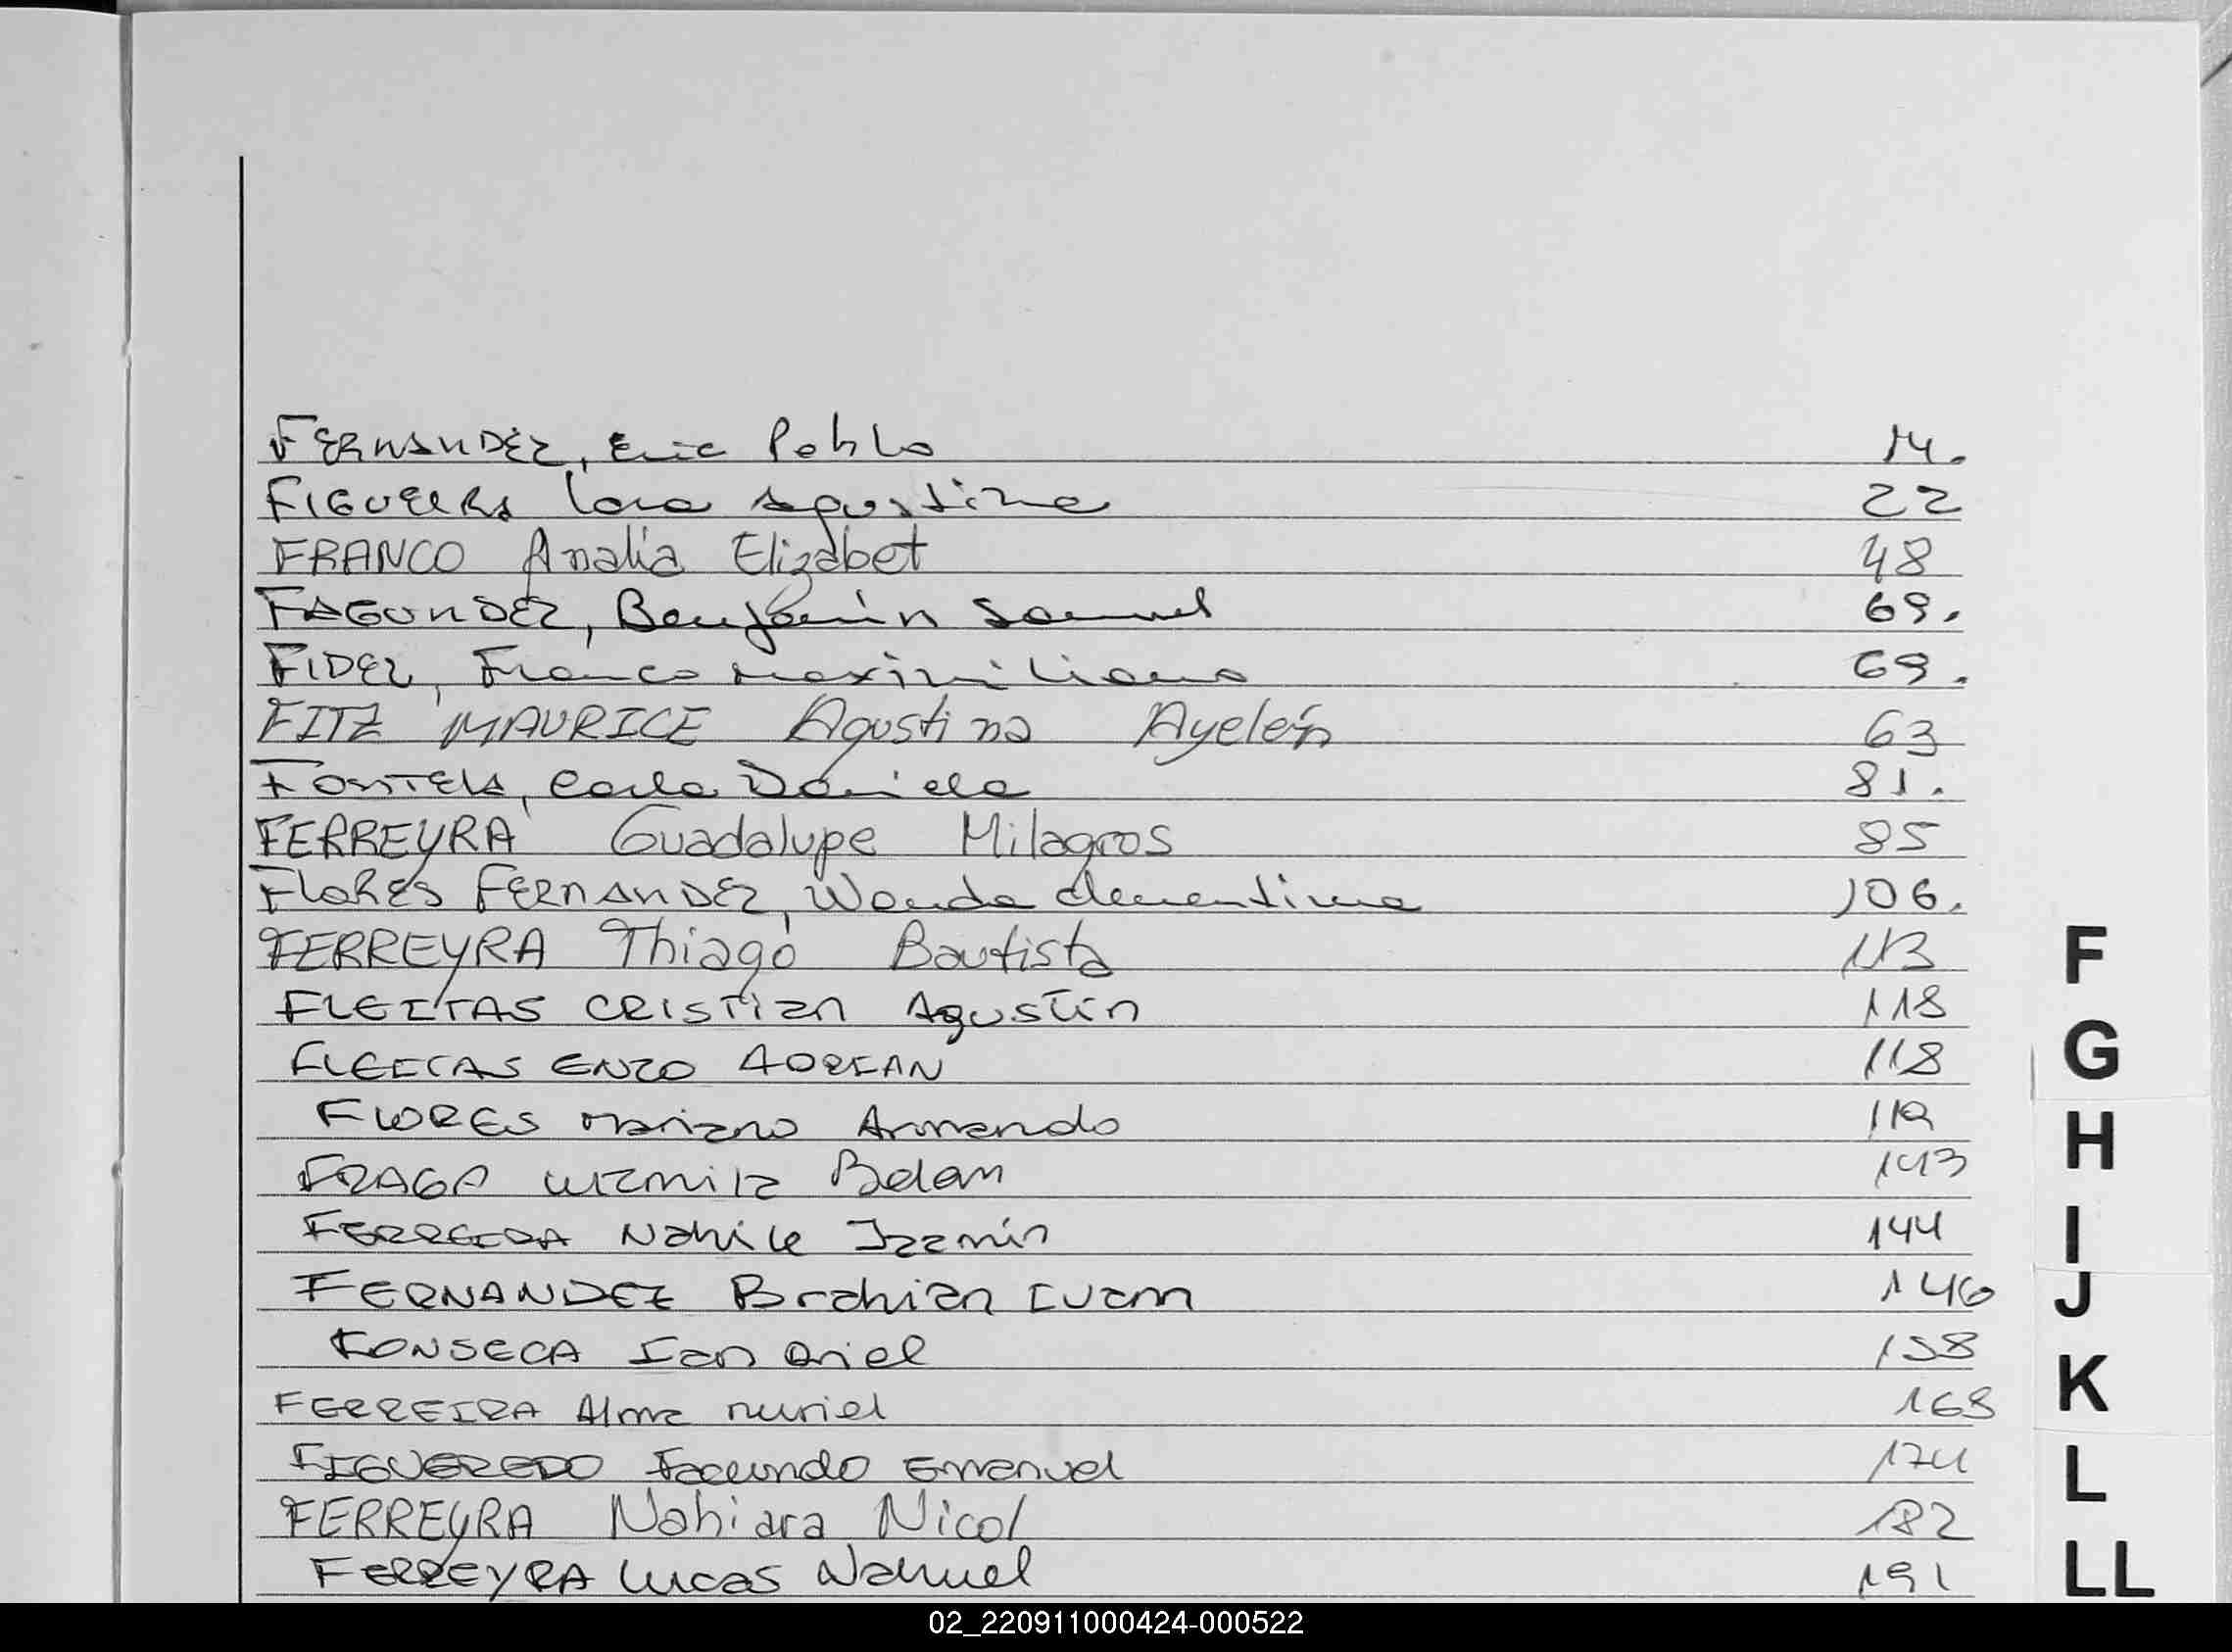 FERNANDEZ, Eric Pablo 14.
FIGUEIRA Lara Agustina 22
FRANCO Analia Elizabet 48
FAGUNDEZ, Benjamín Samuel 69.
FIDEL, Franco Maximiliano 69.
FITZ MAURICE Agustina Ayelén 63
FONTELA, Carla Daniela 81.
FERREYRA Guadalupe Milagros 85
FLORES FERNANDEZ, Wanda Clementina 106.
FERREYRA Thiago Bautista 113
FLEITAS CRISTIAN Agustín 118
FLEITAS ENZO ADRIAN 118
FLORES Mariano Armando 119
FRAGA Luzmila Belen 143
FERREIRA Nahile Jazmín 144
FERNANDEZ Brahian Ivan 146
FONSECA Ian Ariel 158
FERREIRA Alma Muriel 168
FIGUEREDO Facundo Emanuel 174
FERREYRA Nahiara Nicol 182
FERREYRA Lucas Nahuel 191
F
G
H
I
J
K
L
LL
02_220911000424-000522